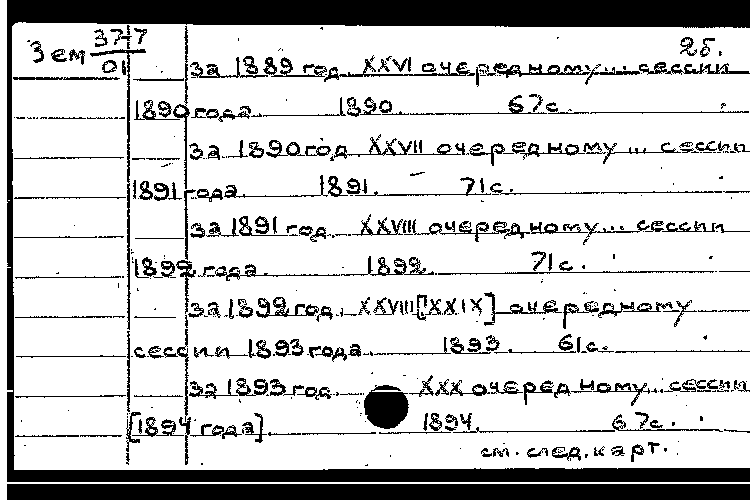 Зем 37-7/01
2б.
за 1889 год. XXVI очередному... сессии
1890 года. 1890. 67с.
за 1890 год XXVII очередному... сессии
1891 года. 1891. 71с.
за 1891 год. XXVIII очередному... сессии
1892 года. 1892. 71с.
за 1892 год. XXVIII [XXIX] очередному
сессии 1893 года. 1893. 61с.
за 1893 год. XXX очередному... сессии
[1894 года]. 1894. 67с.
см. след. карт.